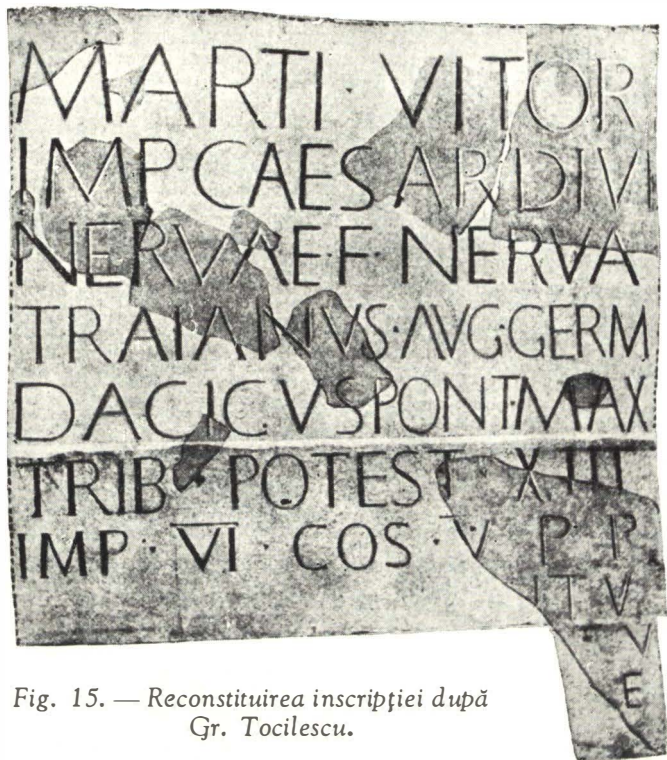 MARTI VITOR
IMP CAESAR DIVI
NERVAE·F· NERVA
TRAIANVS·AVG·GERM
DACICVS PONT·MAX
TRIB · POTEST XIII
IMP · VI · COS · V · P P
IT V
V
E
Fig. 15. — Reconstituirea inscripţiei după
Gr. Tocilescu.